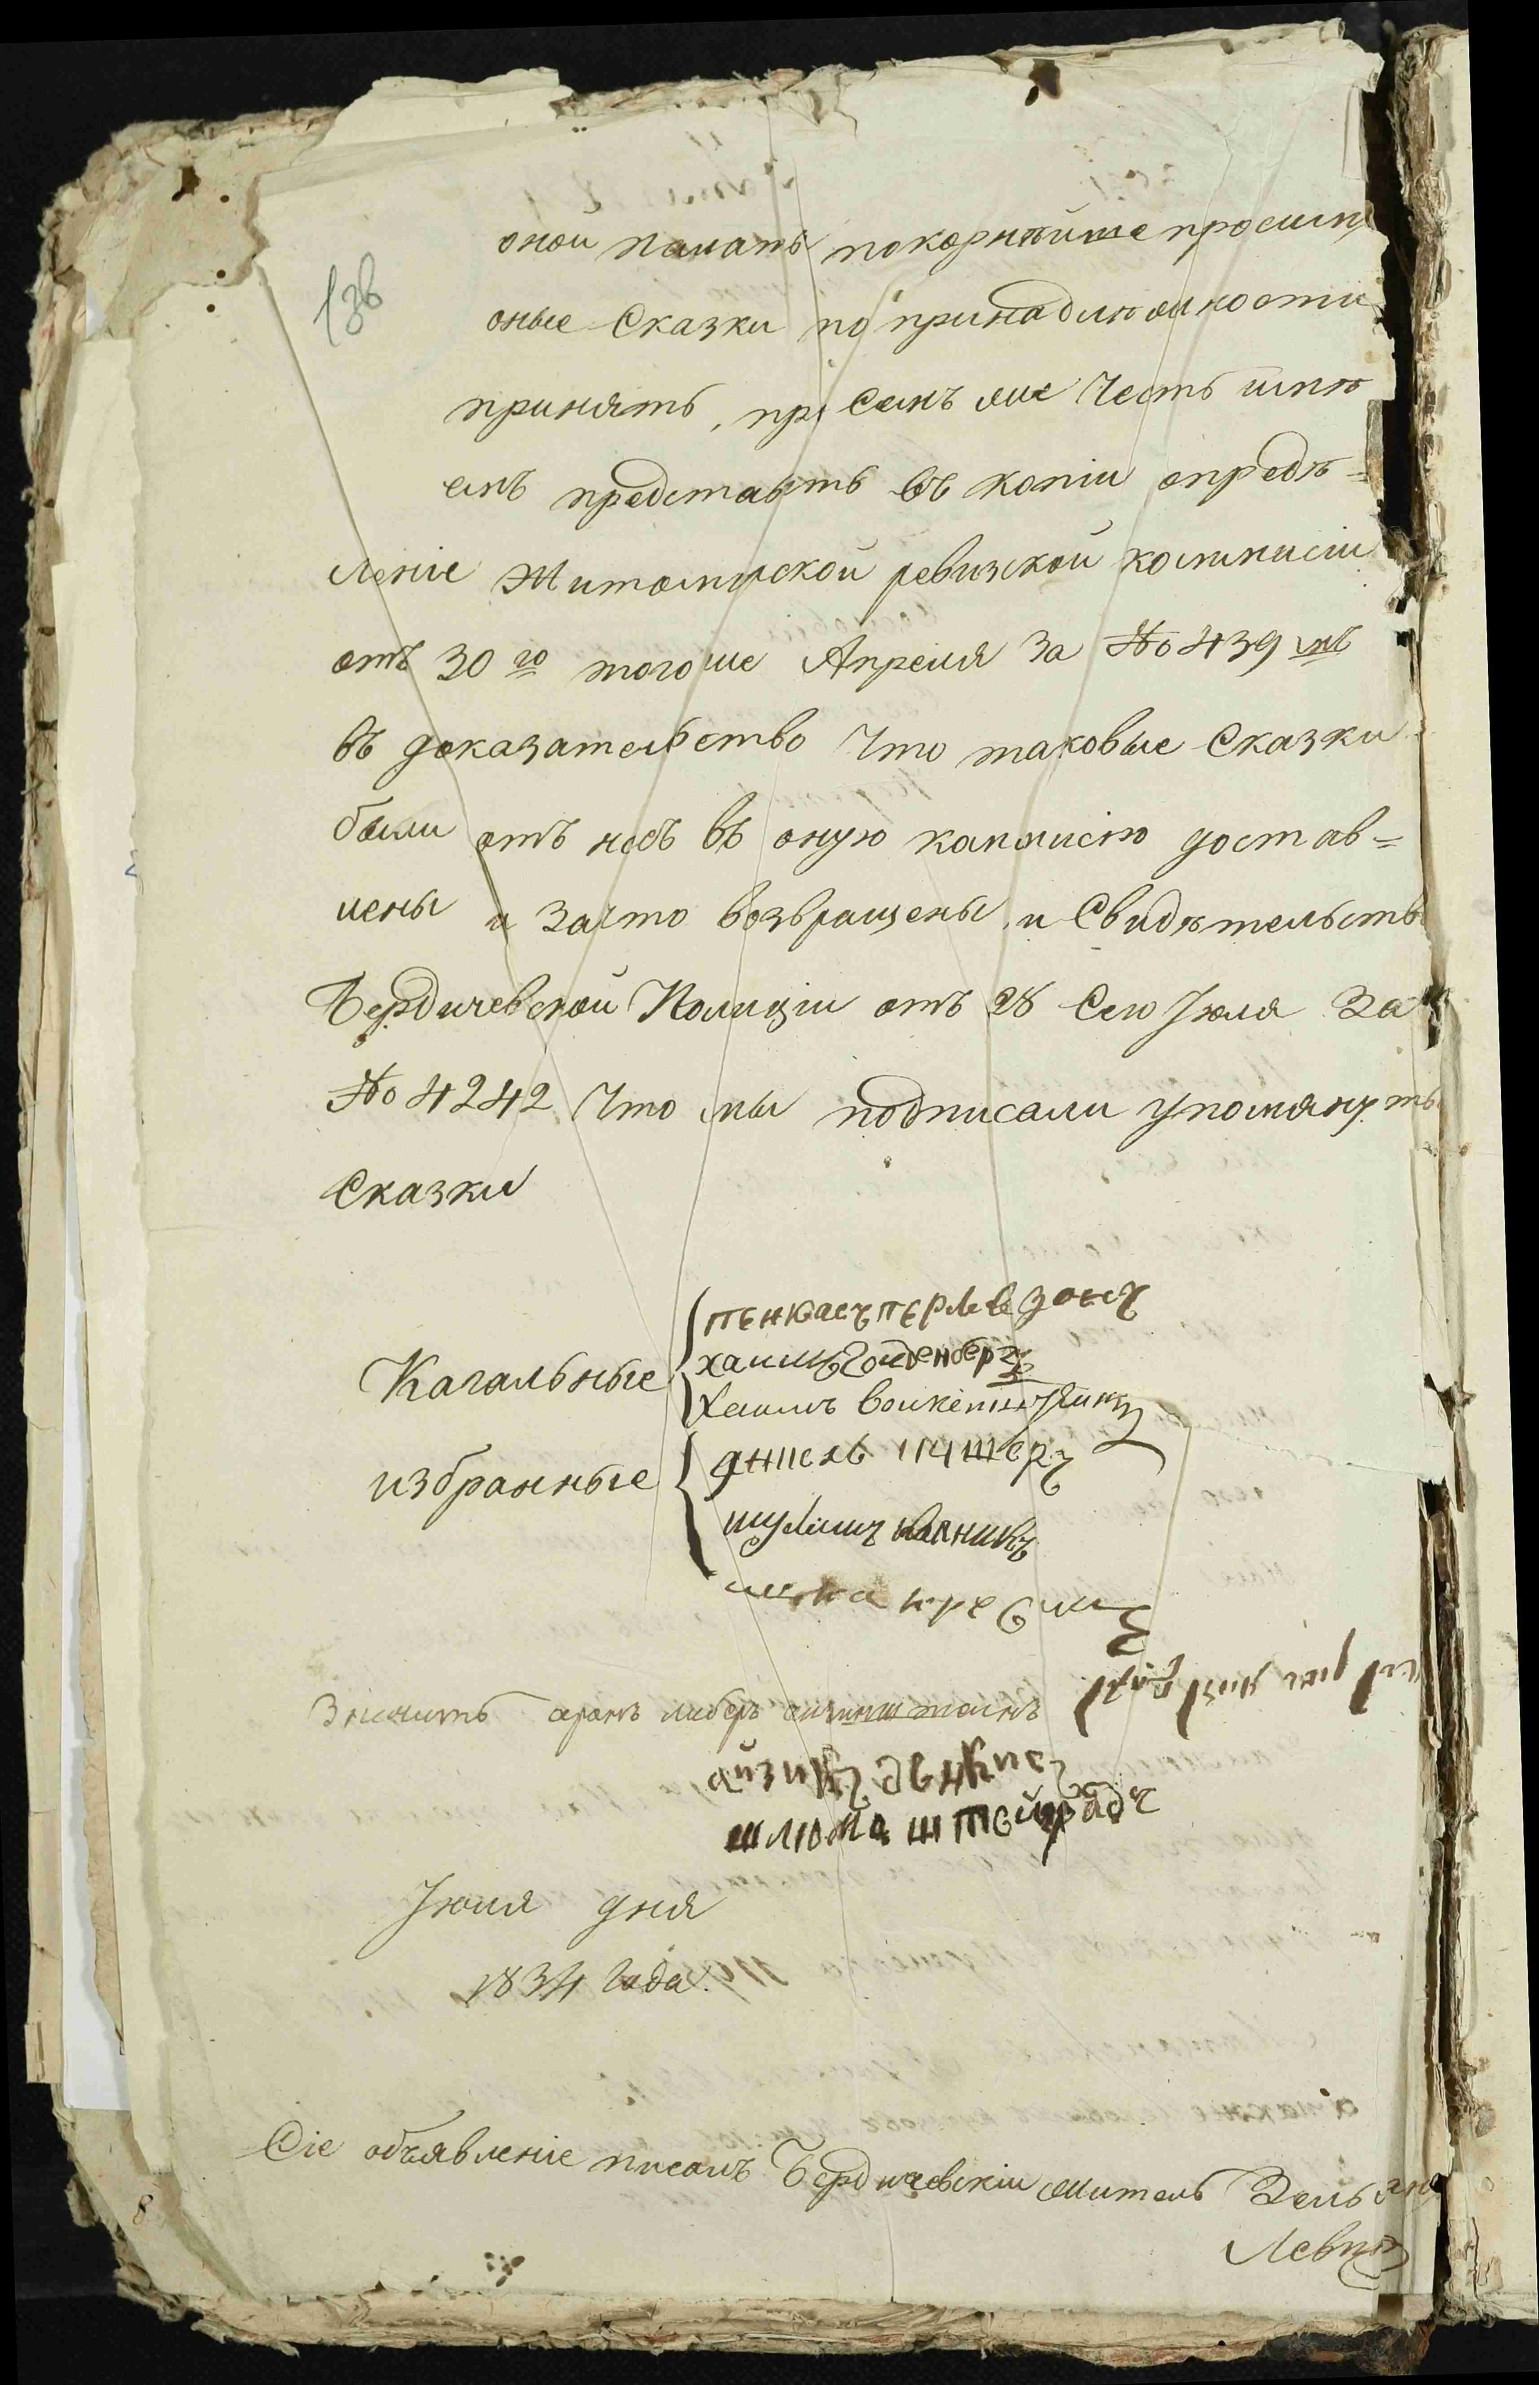 138
оной палатѣ покорнѣйше просимъ
оные Сказки по принадлѣжности
принять, при Семъ же Честь имѣ
емъ представить въ копіи опредѣ=
леніе Житомирской ревизской коммисіи
отъ 30го тогоже Апреля За №439мъ
въ доказательство Что таковые Сказки
были отъ насъ въ оную коммисію достав=
лены и Зачто возвращены, и Свидѣтельство
Бердичевской Полиціи отъ 28 Сего Іюля За
№4242 Что мы подписали упомянуты
Сказки
Кагальные
пенкасъ перлевзонъ
хаимъ Голденбергъ
Хаимъ
избранные
шулимъ
аронъ либеръ
айзикъ
шлюома штейнрадъ
Іюля дня
1834 Года.
Сіе объявленіе писалъ Бердичевскій житель Зель
Левин
8